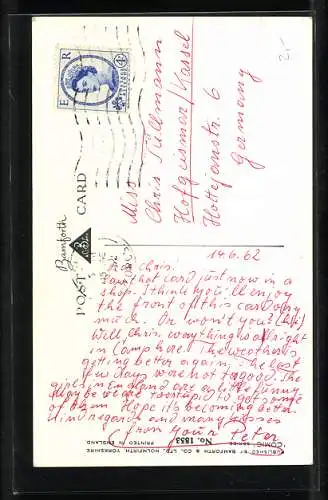 2.-
E R
POSTAGE REVENUE
Bamforth
POST CARD
Miss
Chris Tüllmann
Hofgeismar/Kassel
Hottejanstr. 6
Germany
14.6.62
Dear Chris.
Found that card just now in a
shop. I think you'll enjoy
the front of this card very
much. Or won't you? (haha)
Well Chris, everything allright
in Camp here. The weather is
getting better again. The last
few days were not to good. The
girls in England are a little funny
Maybe we are to stupid to get some
of them. Hope its becoming better
Kind regards and many kisses
from your Peter
PUBLISHED BY BAMFORTH & CO. LTD., HOLMFIRTH, YORKSHIRE
"COMIC" SERIES No. 1853 PRINTED IN ENGLAND